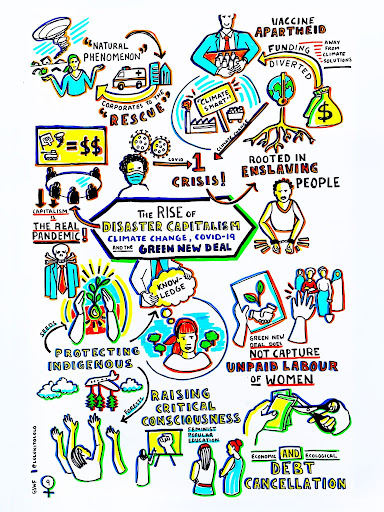 "NATURAL
PHENOMENON"
CORPORATES TO THE
"RESCUE"
VACCINE
APARTHEID
FUNDING
DIVERTED
AWAY
FROM
CLIMATE
SOLUTIONS
"CLIMATE
SMART"
$
= $$
COVID
1
CRISIS!
ROOTED IN
ENSLAVING
PEOPLE
CAPITALISM
IS
THE REAL
PANDEMIC!
THE RISE OF
DISASTER CAPITALISM
CLIMATE CHANGE, COVID-19
AND THE GREEN NEW DEAL
KNOW-
LEDGE
SEEDS
PROTECTING
INDIGENOUS
FORESTS
GREEN NEW
DEAL DOES
NOT CAPTURE
UNPAID LABOUR
OF WOMEN
RAISING
CRITICAL
CONSCIOUSNESS
FEMINIST
POPULAR
EDUCATION
ECONOMIC AND ECOLOGICAL
DEBT
CANCELLATION